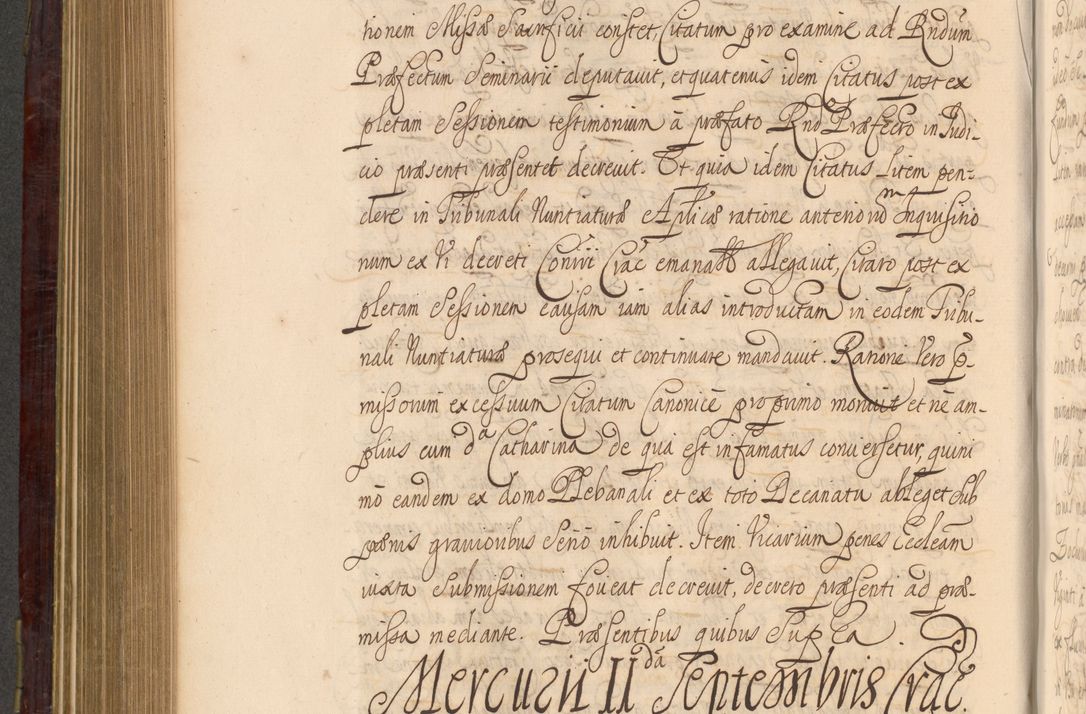 tionem Missæ Sacrificii constet, Citatum pro examine ad Rndum
Præfectum Seminarii deputavit, et quatenus idem Citatus post ex
pletam Sessionem testimonium à præfato Rnd Præfecto in Judi-
cio præsenti præsentet decrevit. Et quia idem Citatus Litem pen=
dere in Tribunali Nuntiaturæ Aplicæ ratione anteriorum Inquisitio
num ex Vi decreti Consri Crac emanat allegavit, Citato post ex
pletam Sessionem causam iam alias introductam in eodem Tribu-
nali Nuntiaturæ prosequi et continuare mandavit. Ratione Vero p-
missorum excessuum Citatum Canonicè pro primo monuit et nè am-
plius cum da Catharina de qua est infamatus conversetur, quini
mò eandem ex domo Plebanali et ex toto Decanatu ableget sub
pœnis gravioribus Seriò inhibuit. Item Vicarium penes Eccleam
iuxta Submissionem foveat decrevit, decreto præsenti ad præ-
missa mediante. Præsentibus quibus Supra.
Mercurii II da Septembris Crac.